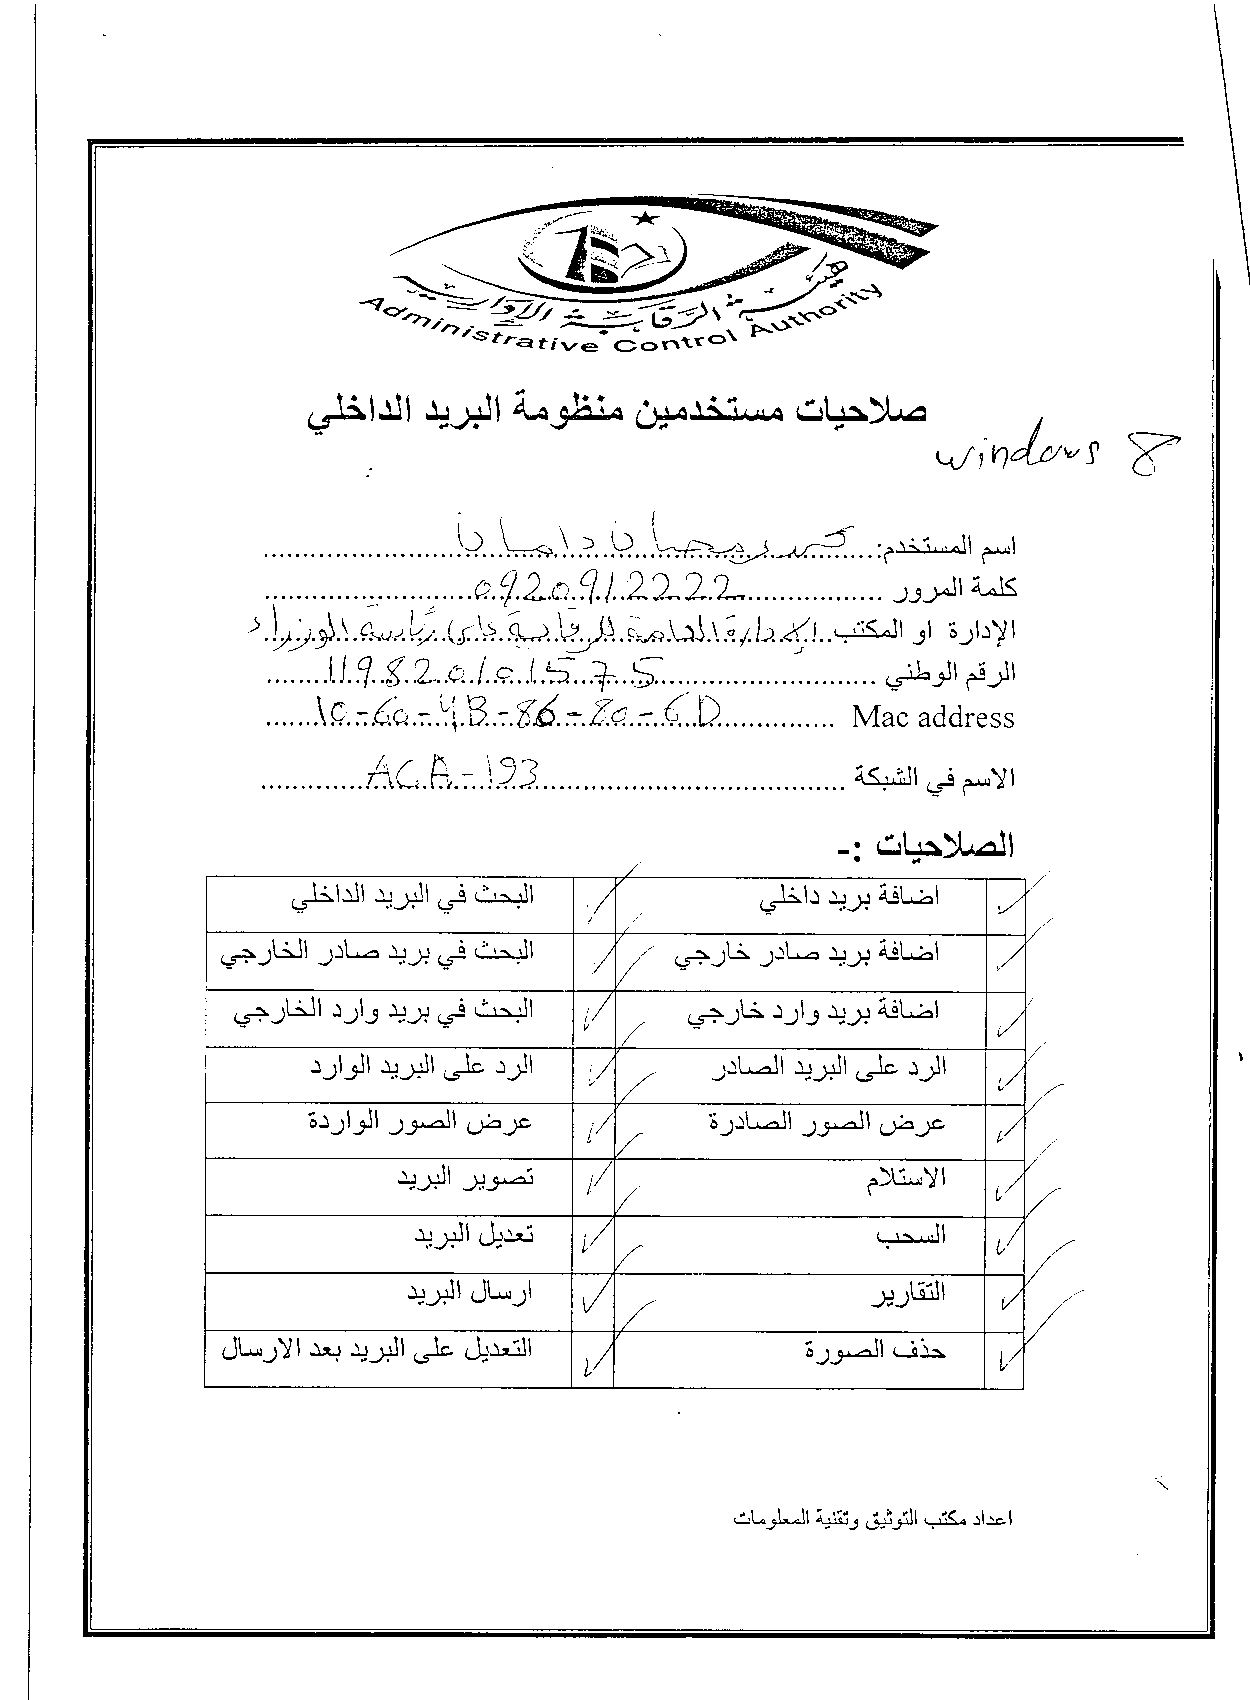 هيئة الرقابة الإدارية
Administrative Control Authority
صلاحيات مستخدمين منظومة البريد الداخلي
windows 8
اسم المستخدم: محمد رمضان دامان
كلمة المرور 0920912222
الإدارة او المكتب الإدارة العامة للرقابة على رئاسة الوزراء
الرقم الوطني 119820101575
Mac address 10-60-4B-86-80-6D
الاسم في الشبكة ACA-193
الصلاحيات :-
✓ اضافة بريد داخلي ✓ البحث في البريد الداخلي
✓ اضافة بريد صادر خارجي ✓ البحث في بريد صادر الخارجي
✓ اضافة بريد وارد خارجي ✓ البحث في بريد وارد الخارجي
✓ الرد على البريد الصادر ✓ الرد على البريد الوارد
✓ عرض الصور الصادرة ✓ عرض الصور الواردة
✓ الاستلام ✓ تصوير البريد
✓ السحب ✓ تعديل البريد
✓ التقارير ✓ ارسال البريد
✓ حذف الصورة ✓ التعديل على البريد بعد الارسال
اعداد مكتب التوثيق وتقنية المعلومات